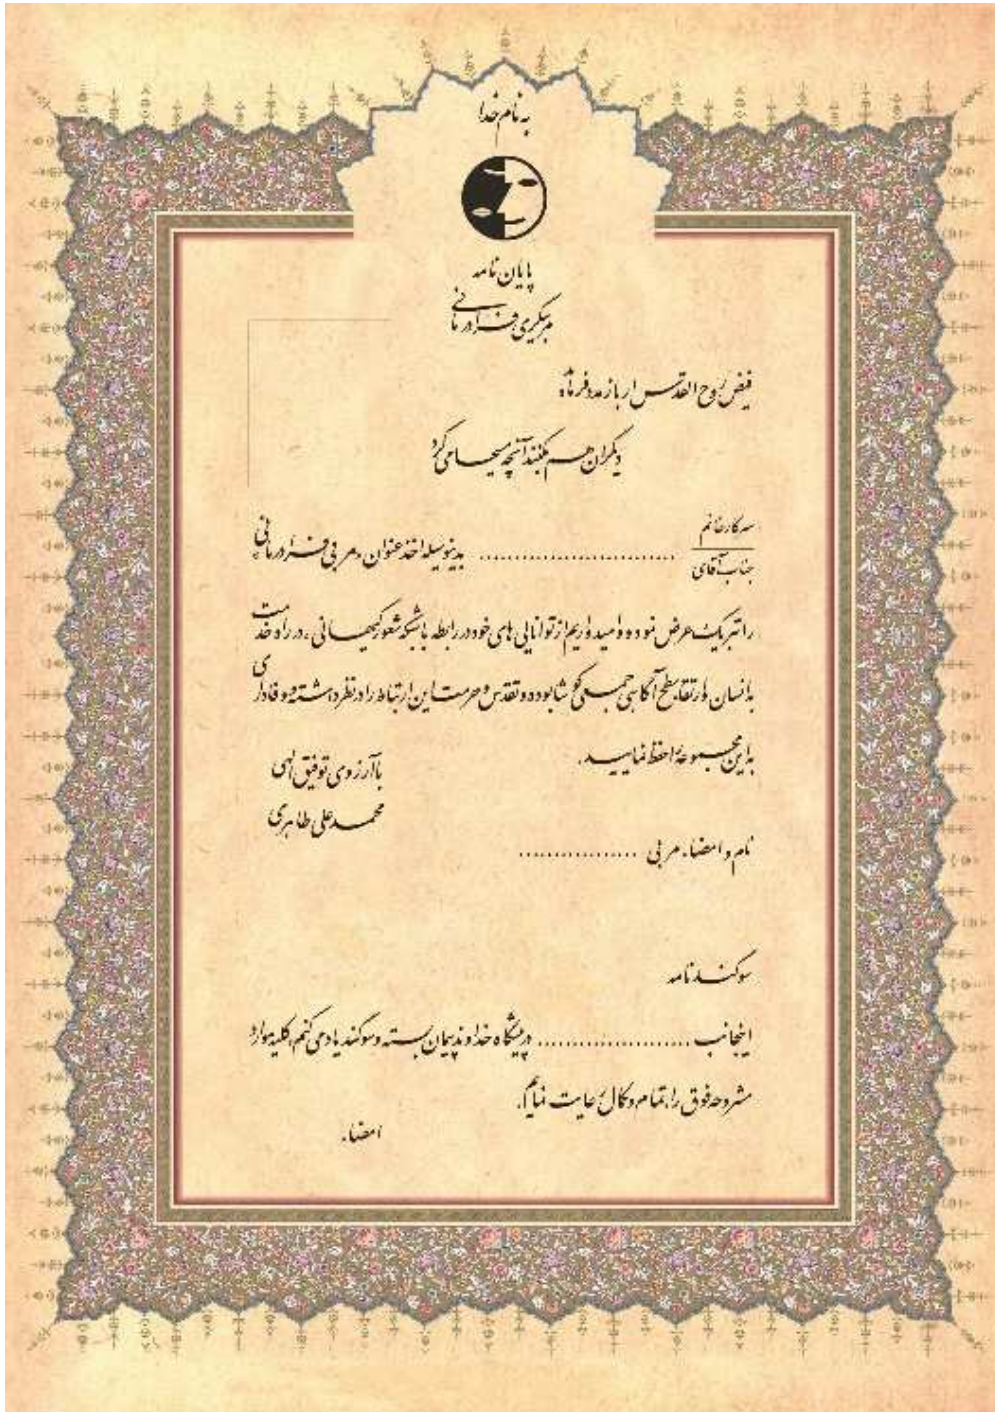 به نام خدا
پایان نامه
مربیگری فرادرمانی
فیض روح القدس ار باز مدد فرماید
دیگران هم بکنند آنچه مسیحا می کرد
سرکار خانم
جناب آقای ........................... بدینوسیله اخذ عنوان «مربی فرادرمانی»
را تبریک عرض نموده و امیدواریم از توانایی های خود در رابطه با شبکه شعور کیهانی، در راه خدمت
به انسان و ارتقاء سطح آگاهی جمعی کوشا بوده و تقدس و حرمت این ارتباط را در نظر داشته و وفاداری
به این مجموعه را حفظ نمایید.
با آرزوی توفیق الهی
محمد علی طاهری
نام و امضاء مربی .................
سوگند نامه
اینجانب ...................... در پیشگاه خداوند پیمان بسته و سوگند یاد می کنم، کلیه موارد
مشروحه فوق را بتمام و کمال رعایت نمایم.
امضاء